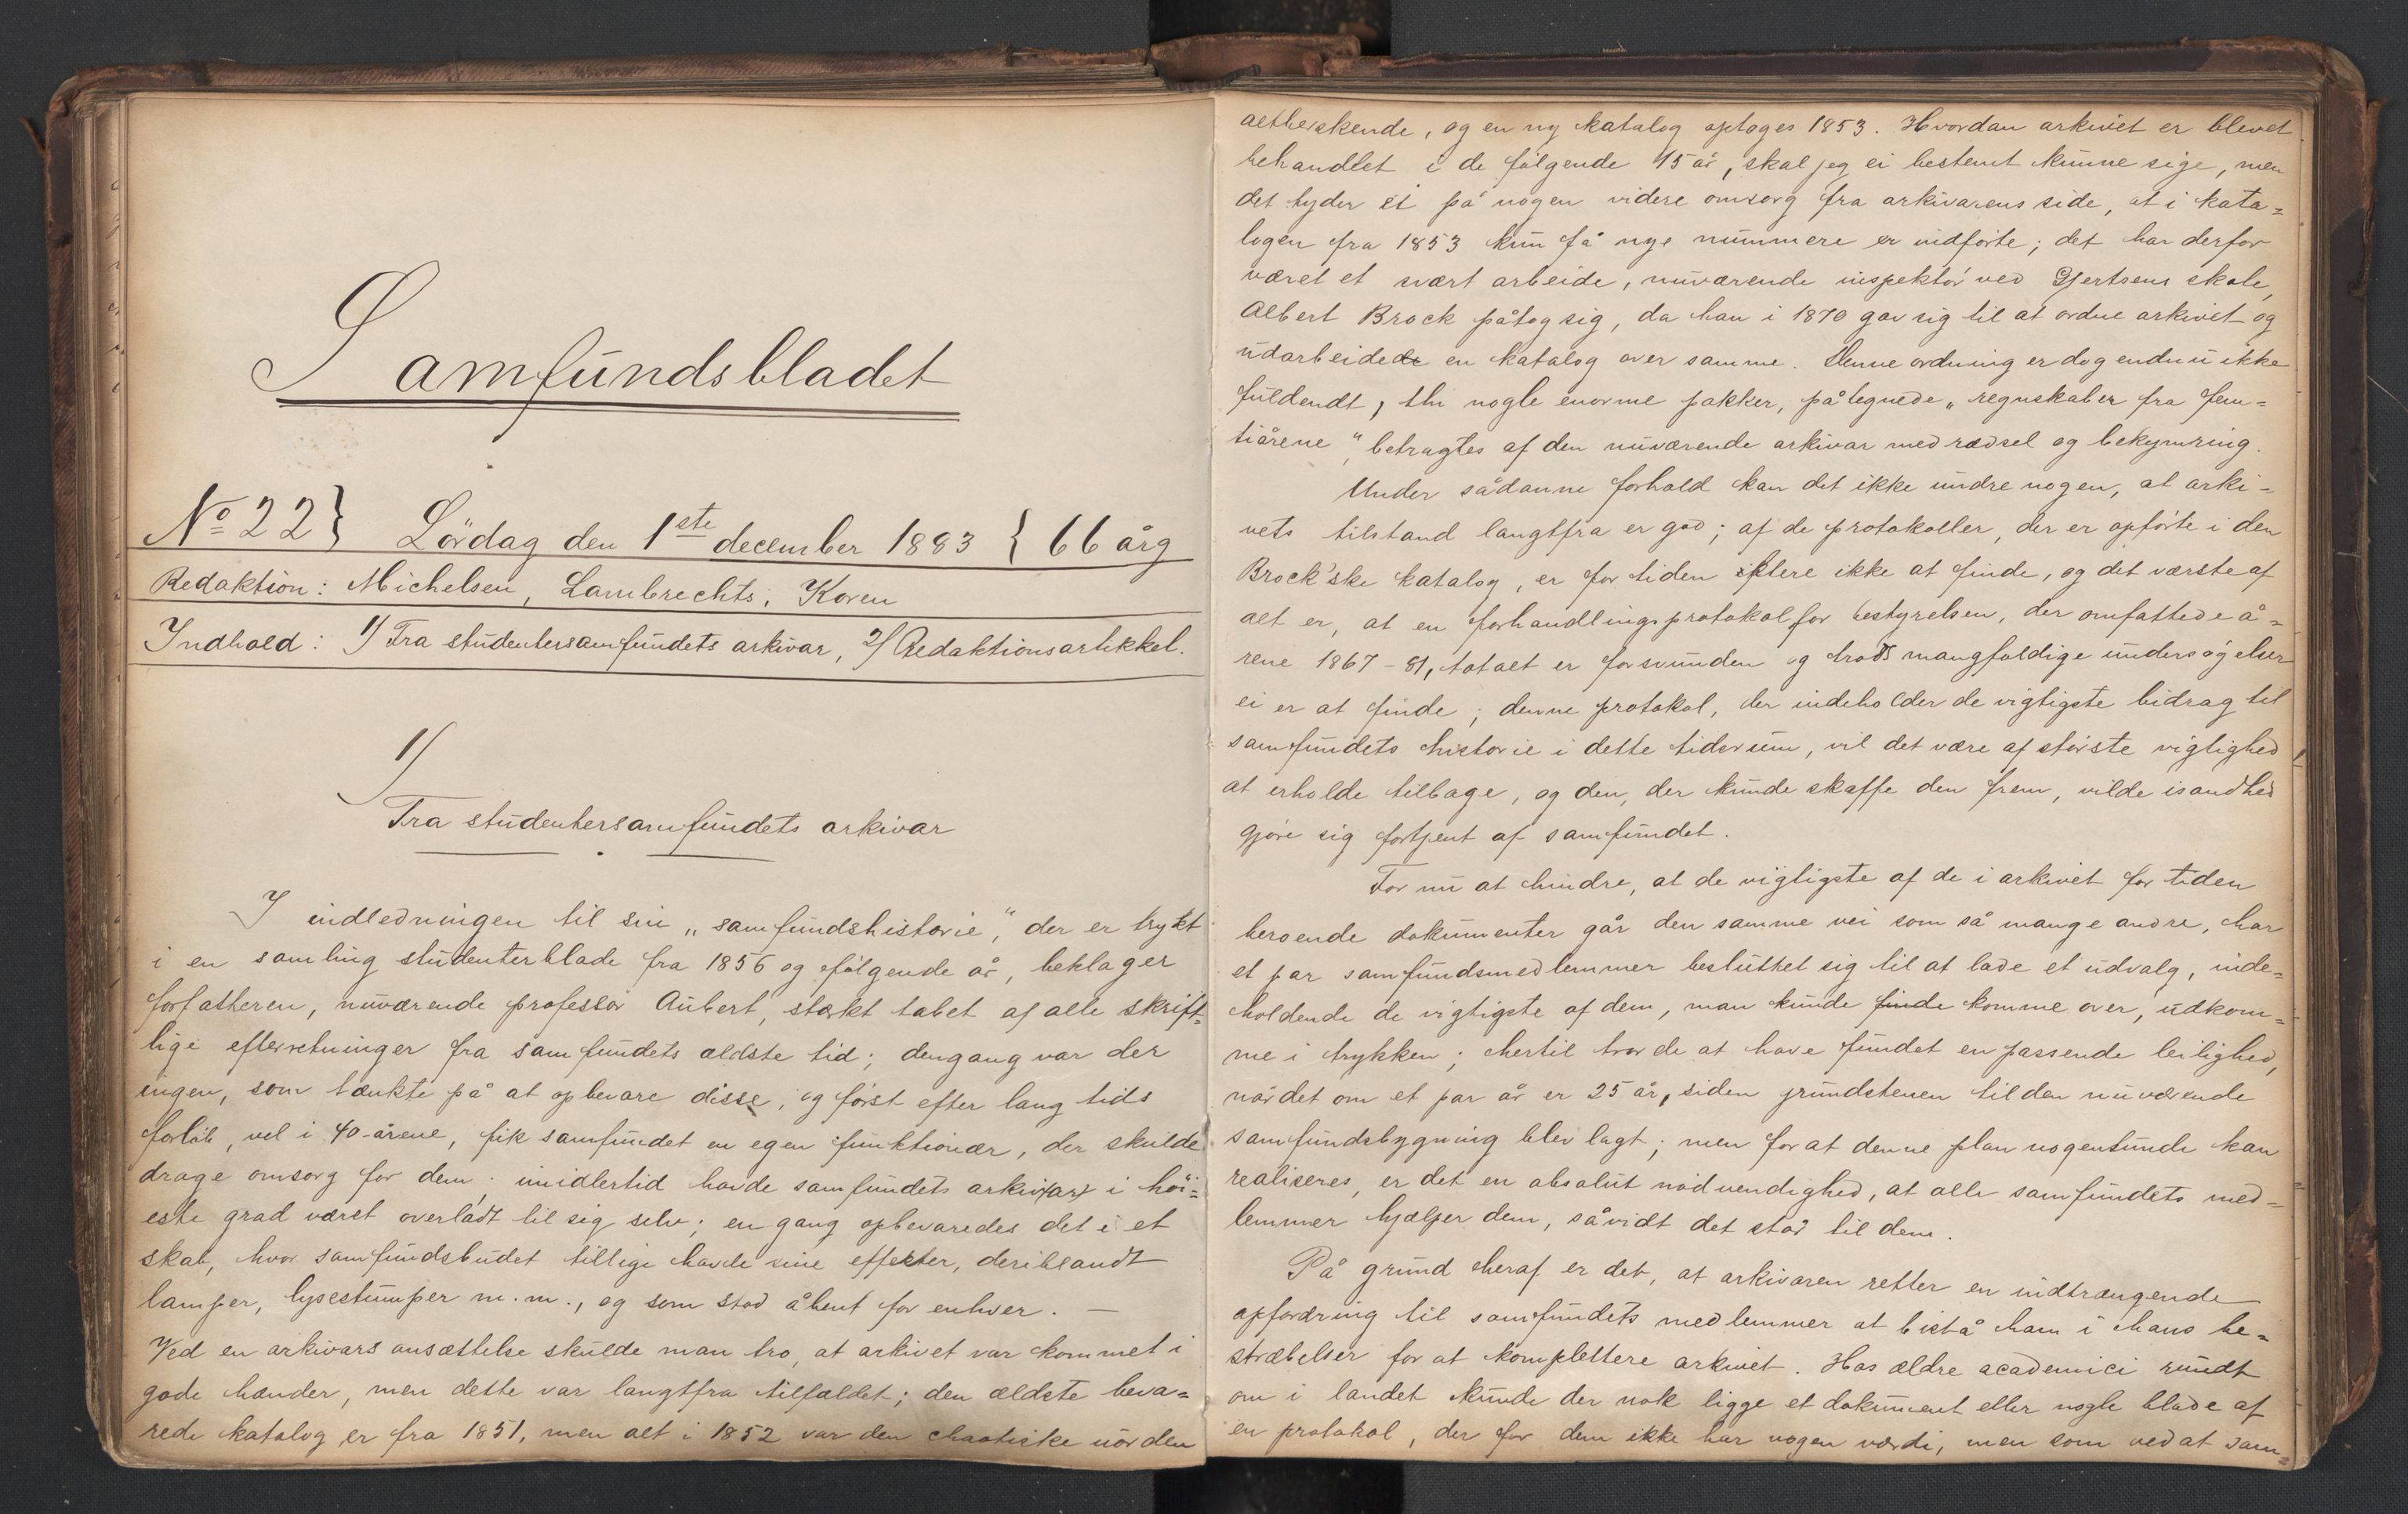 Samfundsbladet
No 22} Lördag den 1ste december 1883 {66 årg
Redaktion: Michelsen, Lambrechts, Koren
Indhold: 1/ Fra studentersamfundets arkivar, 2/ Redaktionsartikkel.
1/
Fra studentersamfundets arkivar
I indledningen til sin „samfundshistorie", der er trykt
i en samling studenterblade fra 1856 og følgende år, beklager
forfatteren, nuværende professor Aubert, stærkt tabet af alle skrift=
lige efterretninger fra samfundets ældste tid; dengang var der
ingen, som tænkte på at opbevare disse, og först efter lang tids
forløb, vel i 40-årene, fik samfundet en egen funktionær, der skulde
drage omsorg for dem; imidlertid havde samfundets arkiv(ar) i höi=
este grad været overladt til sig selv; en gang opbevaredes det i et
skab, hvor samfundsbudet tillige havde sine effekter, deriblandt
lamper, lysestumper m. m., og som stod åbent for enhver. —
Ved en arkivars ansættelse skulde man tro, at arkivet var kommet i
gode hænder, men dette var langtfra tilfældet; den ældste beva=
rede katalog er fra 1851, men alt i 1852 var den chaotiske uorden
altherskende, og en ny katalog optoges 1853. Hvordan arkivet er blevet
behandlet i de følgende 15 år, skal jeg ei bestemt kunne sige, men
det tyder ei på nogen videre omsorg fra arkivarens side, at i kata=
logen fra 1853 kun få nye nummere er indførte; det har derfor
været et svært arbeide, nuværende inspektör ved Gjertsens skole,
Albert Brock påtog sig, da han i 1870 gav sig til at ordne arkivet og
udarbeidede en katalog over samme. Denne ordning er dog endnu ikke
fuldendt, thi nogle enorme pakker, påtegnede „regnskaber fra fem=
tiårene", betragtes af den nuværende arkivar med rædsel og bekymring.
Under sådanne forhold kan det ikke undre nogen, at arki=
vets tilstand langtfra er god; af de protokoller, der er opførte i den
Brock'ske katalog, er for tiden flere ikke at finde, og det værste af
alt er, at en forhandlingsprotokol for bestyrelsen, der omfattede å=
rene 1867-81, totalt er forsvunden og trods mangfoldige undersøgelser
ei er at finde; denne protokol, der indeholder de vigtigste bidrag til
samfundets historie i dette tidsrum, vil det være af störste vigtighed
at erholde tilbage, og den, der kunde skaffe den frem, vilde isandhed
gjöre sig fortjent af samfundet.
For nu at hindre, at de vigtigste af de i arkivet for tiden
beroende dokumenter går den samme vei som så mange andre, har
et par samfundsmedlemmer besluttet sig til at lade et udvalg, inde=
holdende de vigtigste af dem, man kunde finde komme over, udkom=
me i trykken; hertil tror de at have fundet en passende leilighed,
når det om et par år er 25 år, siden grundstenen til den nuværende
samfundsbygning blev lagt; men for at denne plan nogensinde kan
realiseres, er det en absolut nödvendighed, at alle samfundets med=
lemmer hjælper dem, såvidt det står til dem.
På grund heraf er det, at arkivaren retter en indtrængende
opfordring til samfundets medlemmer at bistå ham i hans be=
stræbelser for at komplettere arkivet. Hos ældre academici rundt
om i landet kunde der nok ligge et dokument eller nogle blade af
en protokol, der for dem ikke har nogen værdi, men som ved at sam=